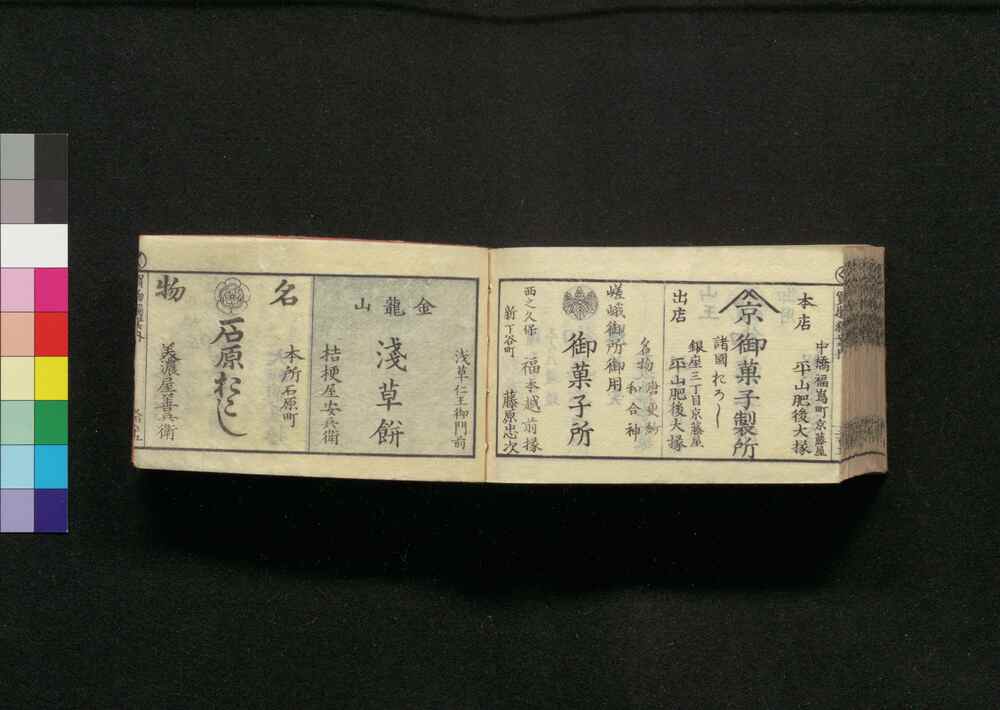 本店
中橋福嶌町京藤屋
平山肥後大掾
京御菓子製所
諸國おろし
出店
銀座三丁目京藤屋
平山肥後大掾
名物
唐東納
和合神
嵯峨御所御用
御菓子所
西之久保
新下谷町
福本越前掾
藤原忠次
金龍山
浅草仁王御門前
淺草餅
桔梗屋安兵衛
名物
本所石原町
石原おこし
美濃屋善兵衛